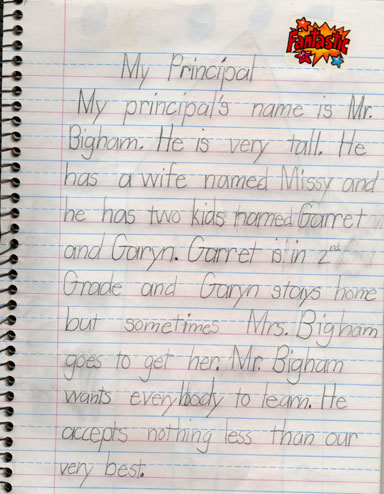 Fantastic
My Principal
My principal's name is Mr.
Bigham. He is very tall. He
has a wife named Missy and
he has two kids named Garret
and Garyn. Garret is in 2nd
Grade and Garyn stays home
but sometimes Mrs. Bigham
goes to get her. Mr. Bigham
wants everybody to learn. He
accepts nothing less than our
very best.